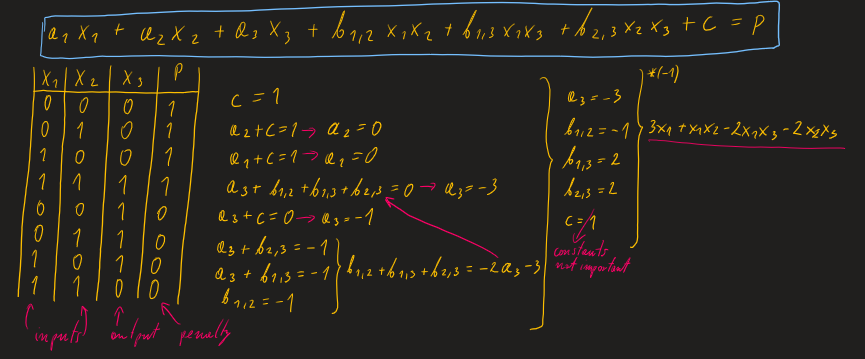 a₁x₁ + a₂x₂ + a₃x₃ + b₁,₂ x₁x₂ + b₁,₃ x₁x₃ + b₂,₃ x₂x₃ + c = p
x₁ x₂ x₃ P
0 0 0 1
0 1 0 1
1 0 0 1
1 1 1 1
0 0 1 0
0 1 1 0
1 0 1 0
1 1 0 0
inputs output penalty
c = 1
a₂ + c = 1 → a₂ = 0
a₁ + c = 1 → a₁ = 0
a₃ + b₁,₂ + b₁,₃ + b₂,₃ = 0 → a₃ = -3
a₃ + c = 0 → a₃ = -1
a₃ + b₂,₃ = -1
a₃ + b₁,₃ = -1
b₁,₂ = -1
b₁,₂ + b₁,₃ + b₂,₃ = -2a₃ - 3
a₃ = -3
b₁,₂ = -1
b₁,₃ = 2
b₂,₃ = 2
c = 1
constants
not important
*(-1)
3x₁ + x₁x₂ - 2x₁x₃ - 2x₂x₃